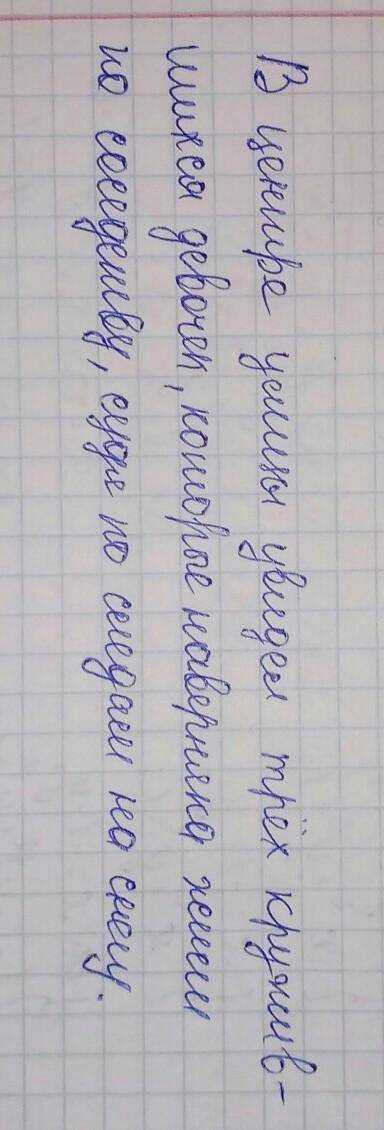 В центре улицы увидел трёх кружив-
шихся девочек, которые наверняка жили
по соседству, судя по следам на снегу.